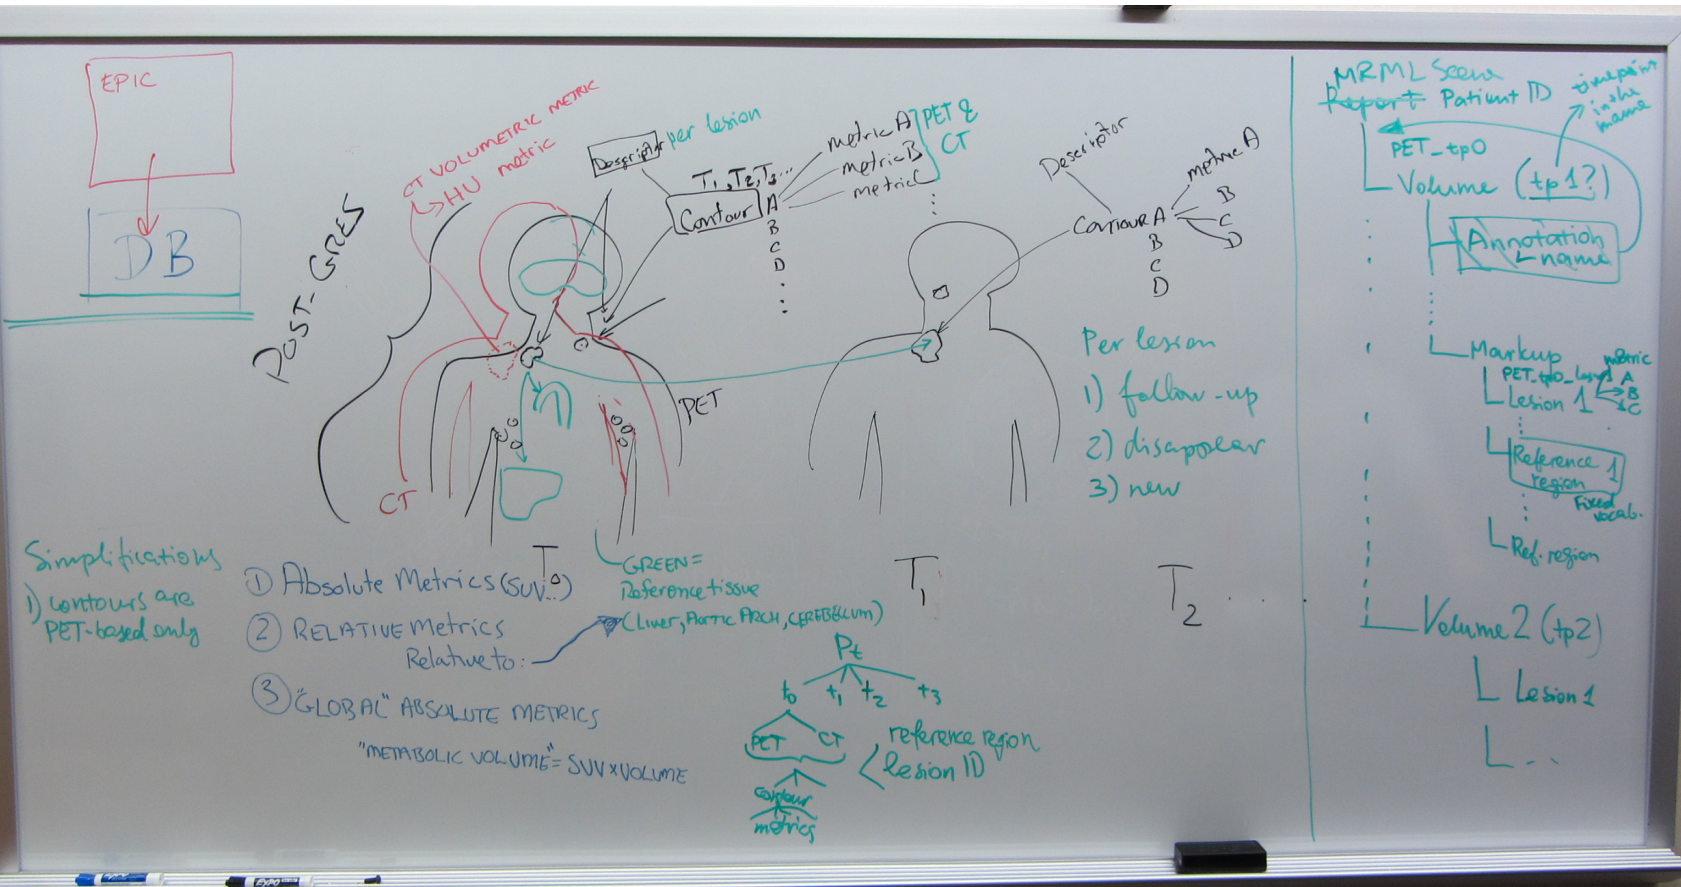 EPIC
DB
POST-GRES
CT VOLUMETRIC METRIC
HU metric
Descriptor
per lesion
T1, T2, T3...
Contour
A
B
C
D
metric A
metric B
metric C
PET &
CT
Descriptor
Contour A
B
C
D
metric A
B
C
D
CT
PET
Per lesion
1) follow-up
2) disappear
3) new
T0
T1
T2 ....
GREEN =
Reference tissue
(Liver, Aortic ARCH, CEREBELLUM)
Simplifications
1) contours are
PET-based only
① Absolute Metrics (SUV...)
② RELATIVE Metrics
Relative to:
③ "GLOBAL" ABSOLUTE METRICS
"METABOLIC VOLUME" = SUV x VOLUME
Pt
t0 t1 t2 t3
PET CT
reference region
lesion ID
contour
metrics
MRML Scene
Report Patient ID
timepoint
in the
name
PET_tp0
Volume (tp1?)
Annotation
name
Markup
metric
A
B
C
Lesion 1
Reference 1
region
Fixed
vocab.
Ref. region
Volume 2 (tp2)
Lesion 1
...
EXPO